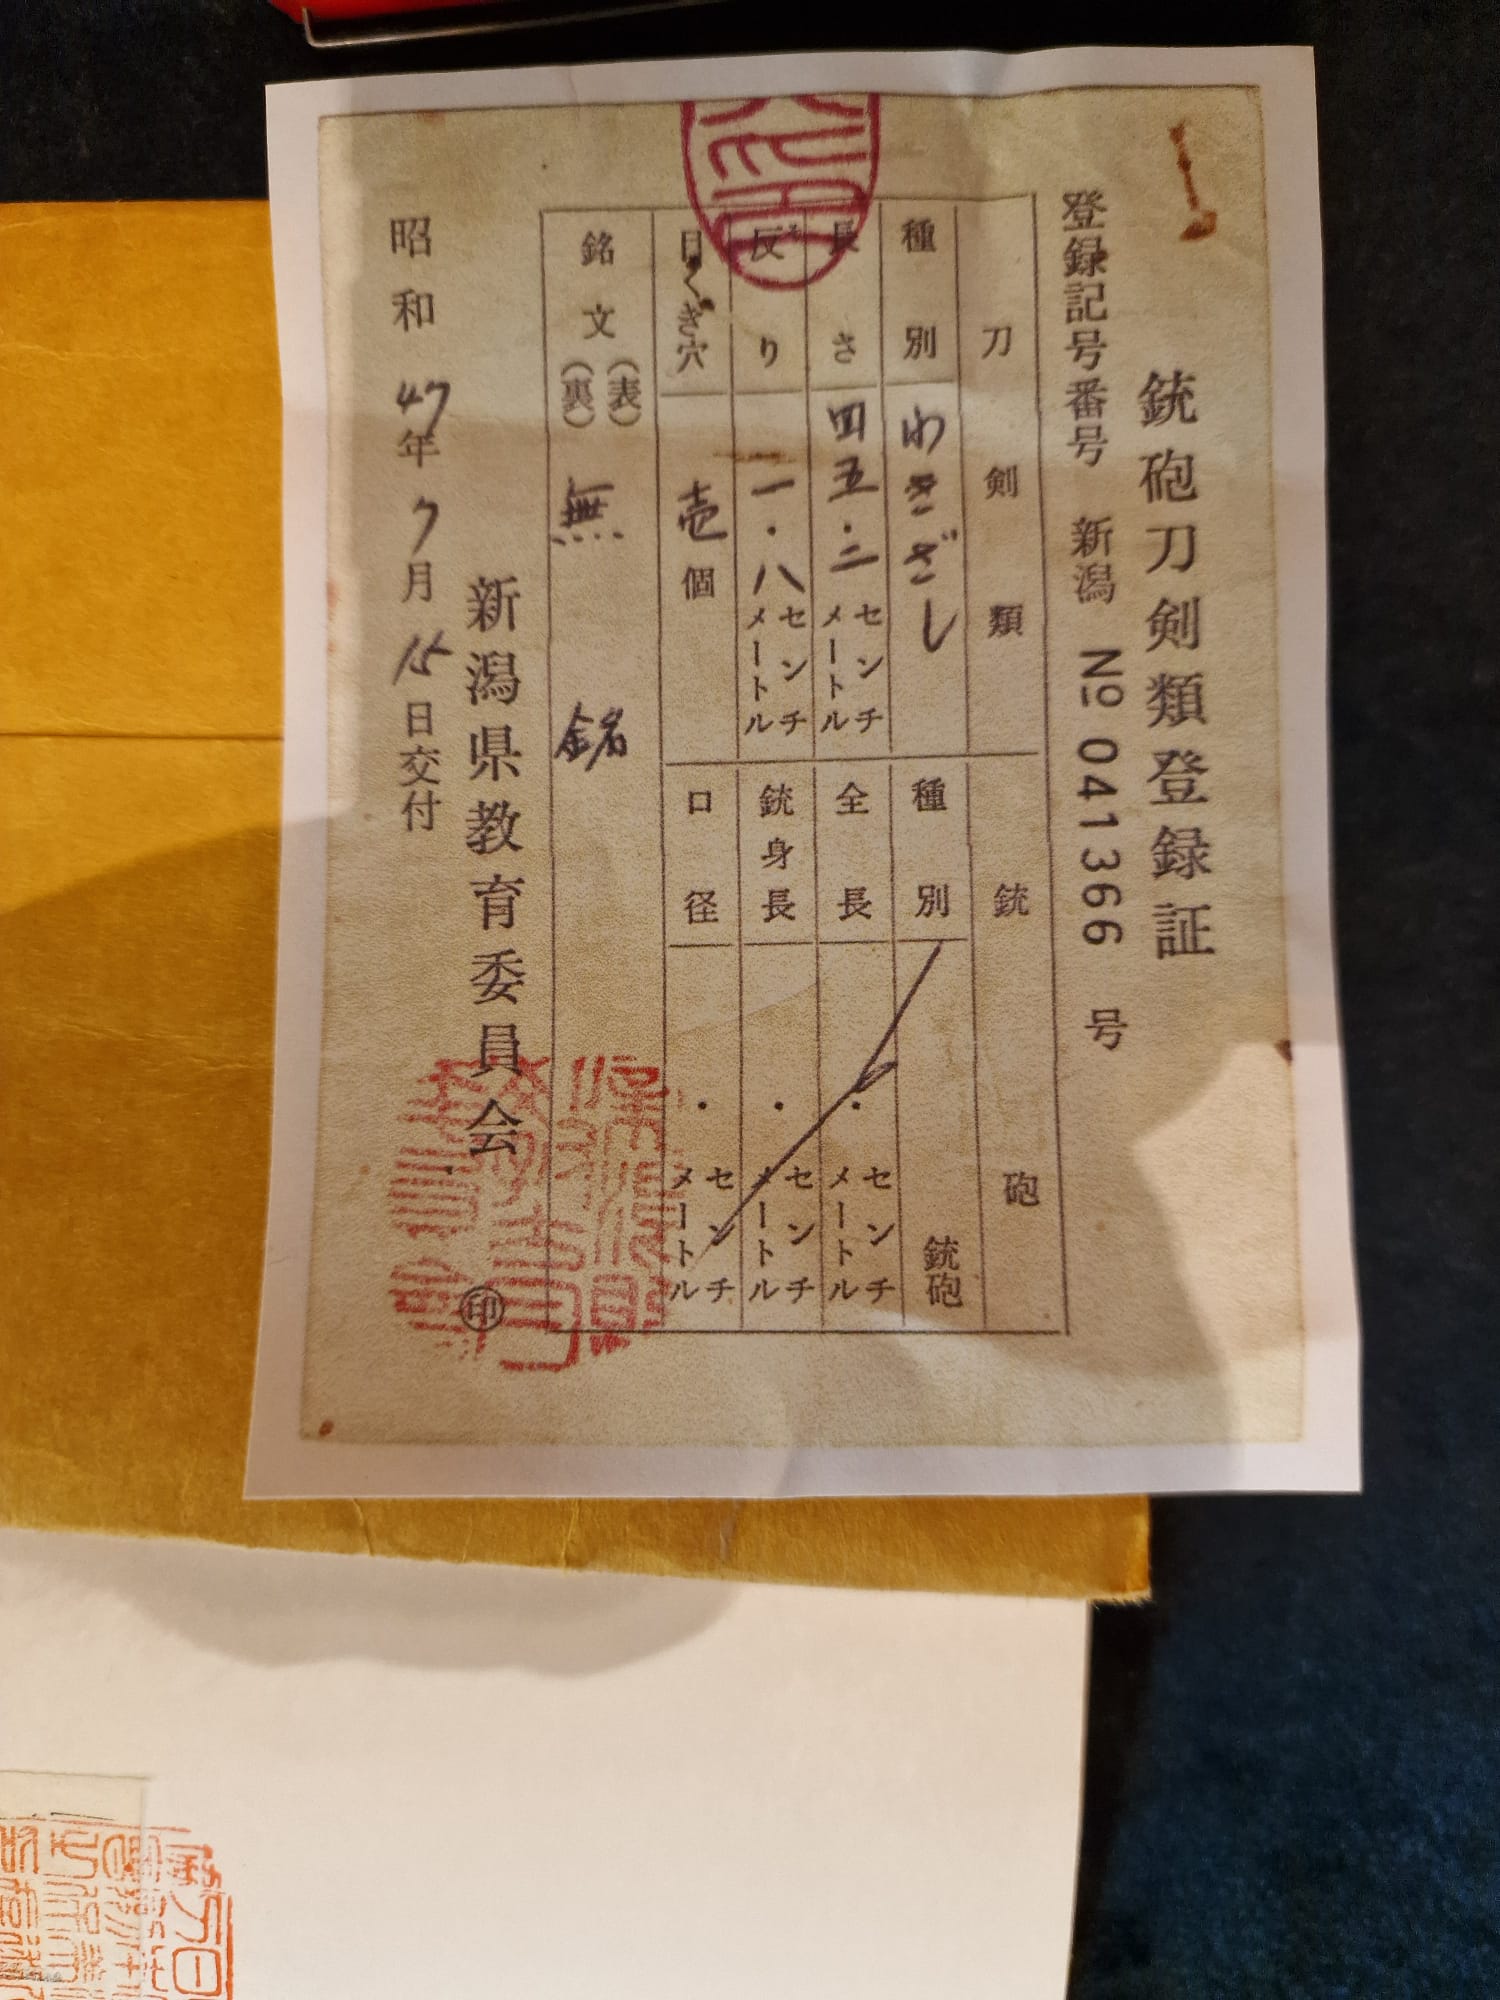 銃砲刀剣類登録証
登録記号番号 新潟 № 041366 号
刀剣類
種別 わきざし
長さ 四五.二 センチメートル
反り 一.八 センチメートル
目くぎ穴 壱個
銘文 (表) (裏) 無銘
銃砲
種別 銃砲
全長 . センチメートル
銃身長 . センチメートル
口径 . センチメートル
新潟県教育委員会 ㊞
昭和47年7月15日交付